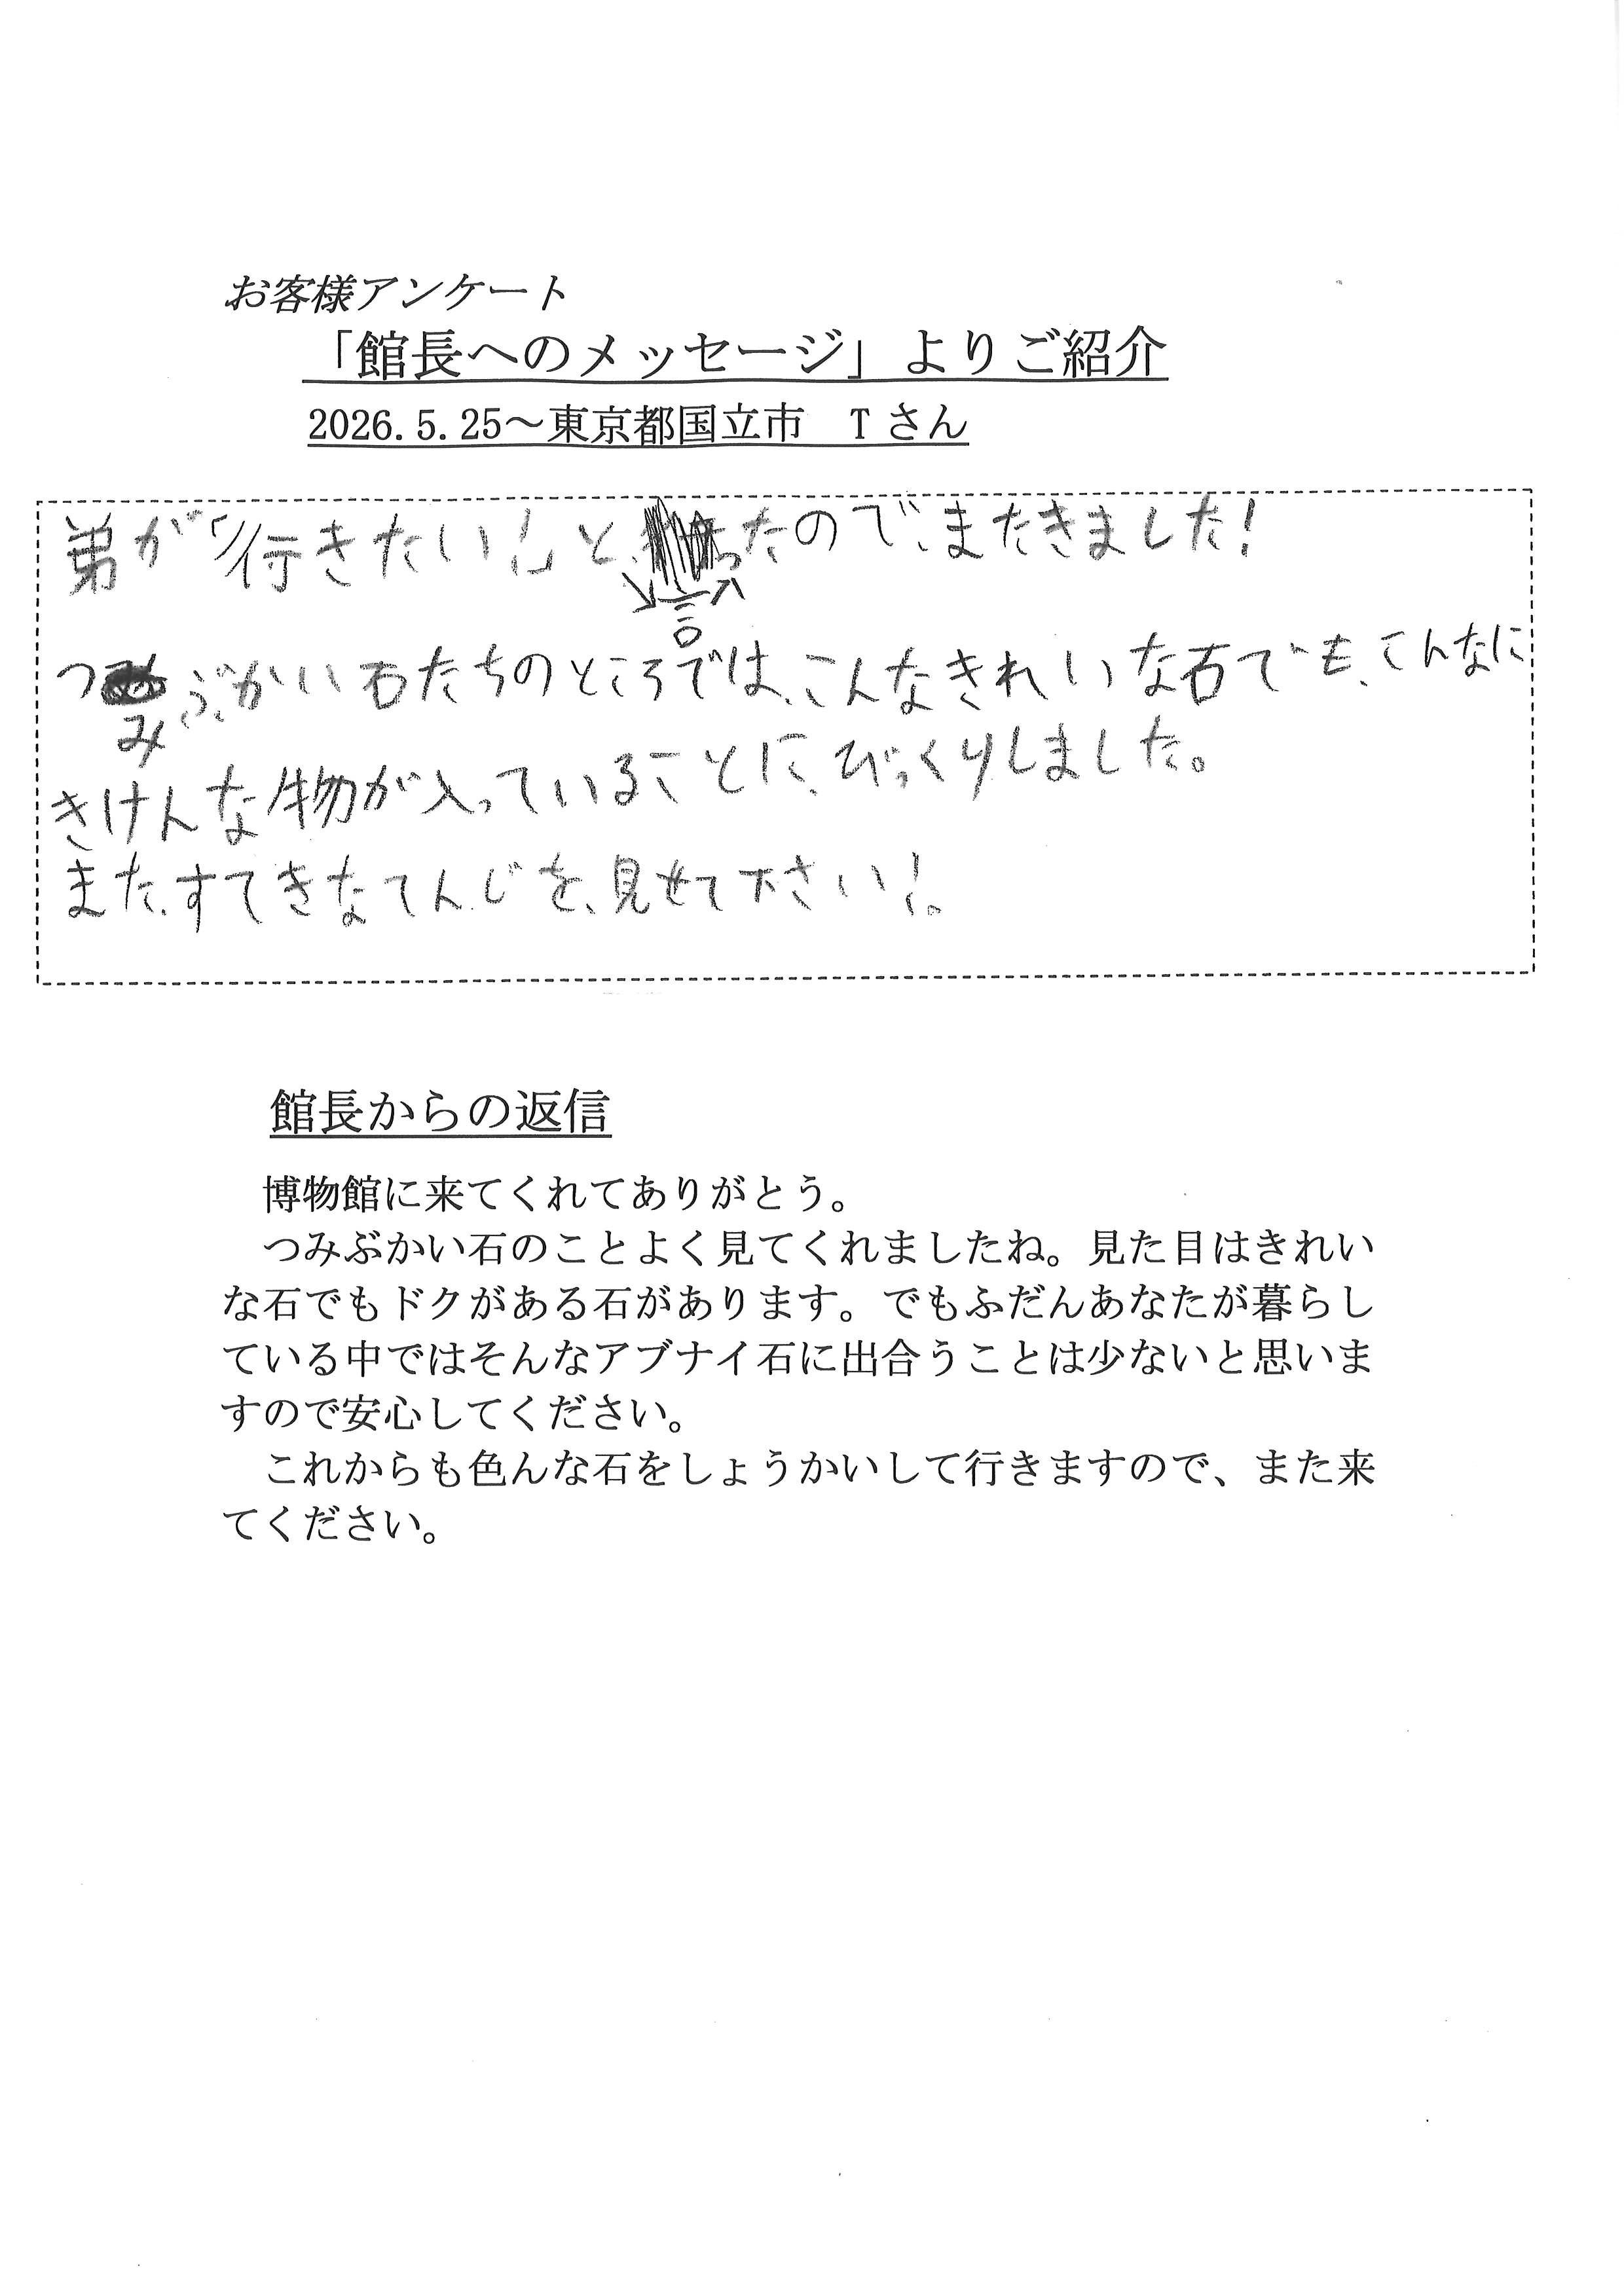 お客様アンケート
「館長へのメッセージ」よりご紹介
2026.5.25～東京都国立市　Tさん
弟が「行きたい!」と、言ったので、またきました!
つみぶかい石たちのところでは、こんなきれいな石でも、こんなに
きけんな物が入っていることに、びっくりしました。
また、すてきなてんじを、見せて下さい!。
館長からの返信
博物館に来てくれてありがとう。
つみぶかい石のことよく見てくれましたね。見た目はきれい
な石でもドクがある石があります。でもふだんあなたが暮らし
ている中ではそんなアブナイ石に出合うことは少ないと思いま
すので安心してください。
これからも色んな石をしょうかいして行きますので、また来
てください。